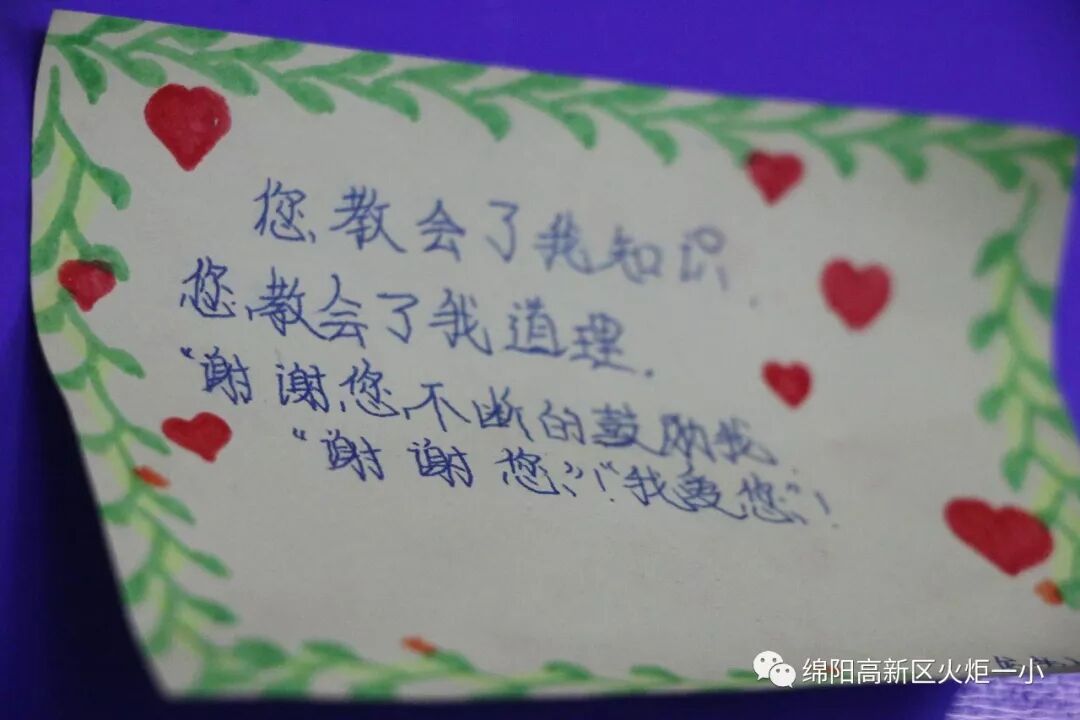 您教会了我知识.
您教会了我道理.
“谢谢您不断的鼓励我
“谢谢您”!“我爱您”!
绵阳高新区火炬一小